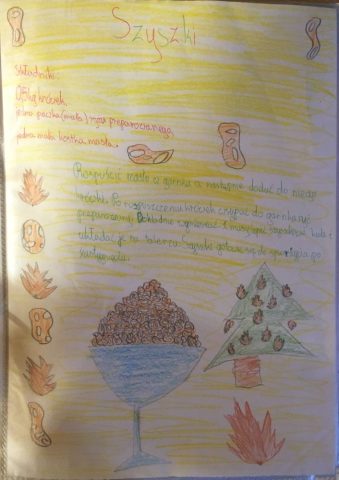 Szyszki
Składniki:
0,5kg krówek.
jedna paczka (mała) ryżu preparowanego
jedna mała kostka masła.
Rozpuścić masło w garnku a następnie dodać do niego
krówki. Po rozpuszczeniu krówek wsypać do garnka ryż
preparowany. Dokładnie wymieszać i masę
układać je na talerzu. Szyszki gotowe są do spożycia po
zastygnięciu.